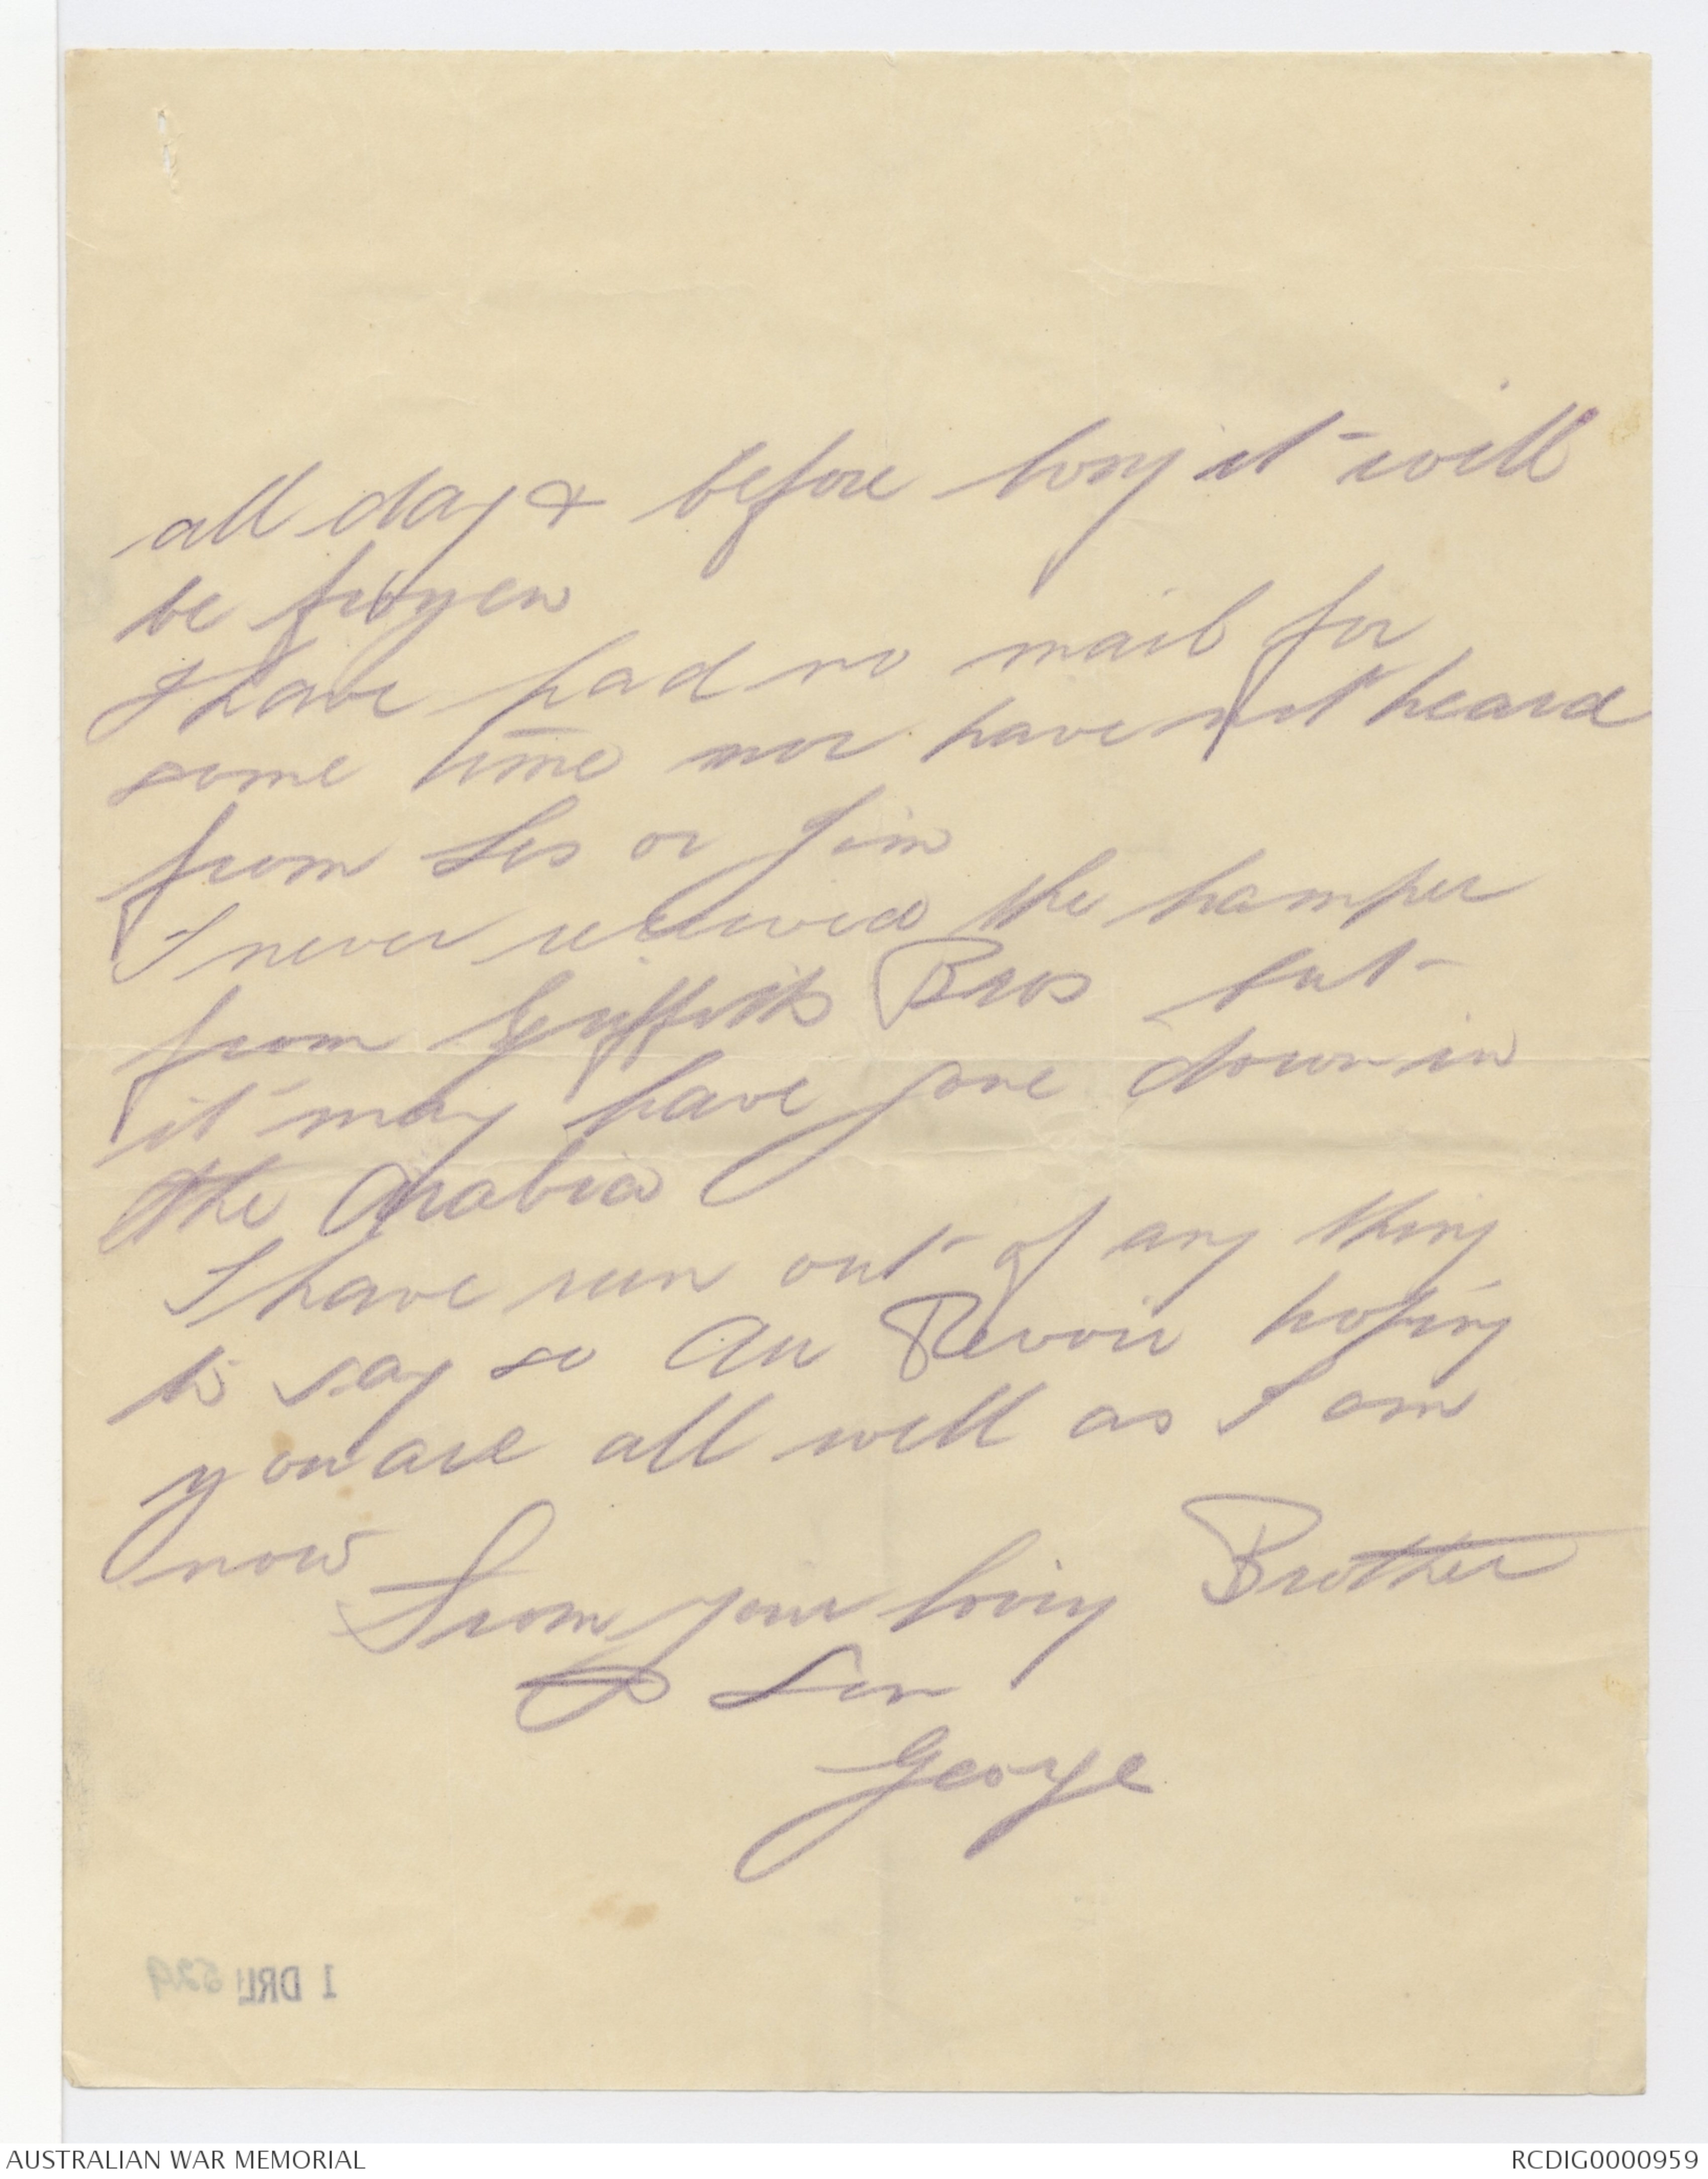 all day & before long it will
be frozen
I have had no mail for
some time nor have not heard
from Les or Jim
I never received the hamper
from Griffiths Bros but
it may have gone down in
the Arabia
I have run out of any thing
to say so Au Revoir hoping
you are all well as I am
now
From your loving Brother
& Son
George
1 DRL 529
AUSTRALIAN WAR MEMORIAL
RCDIG0000959